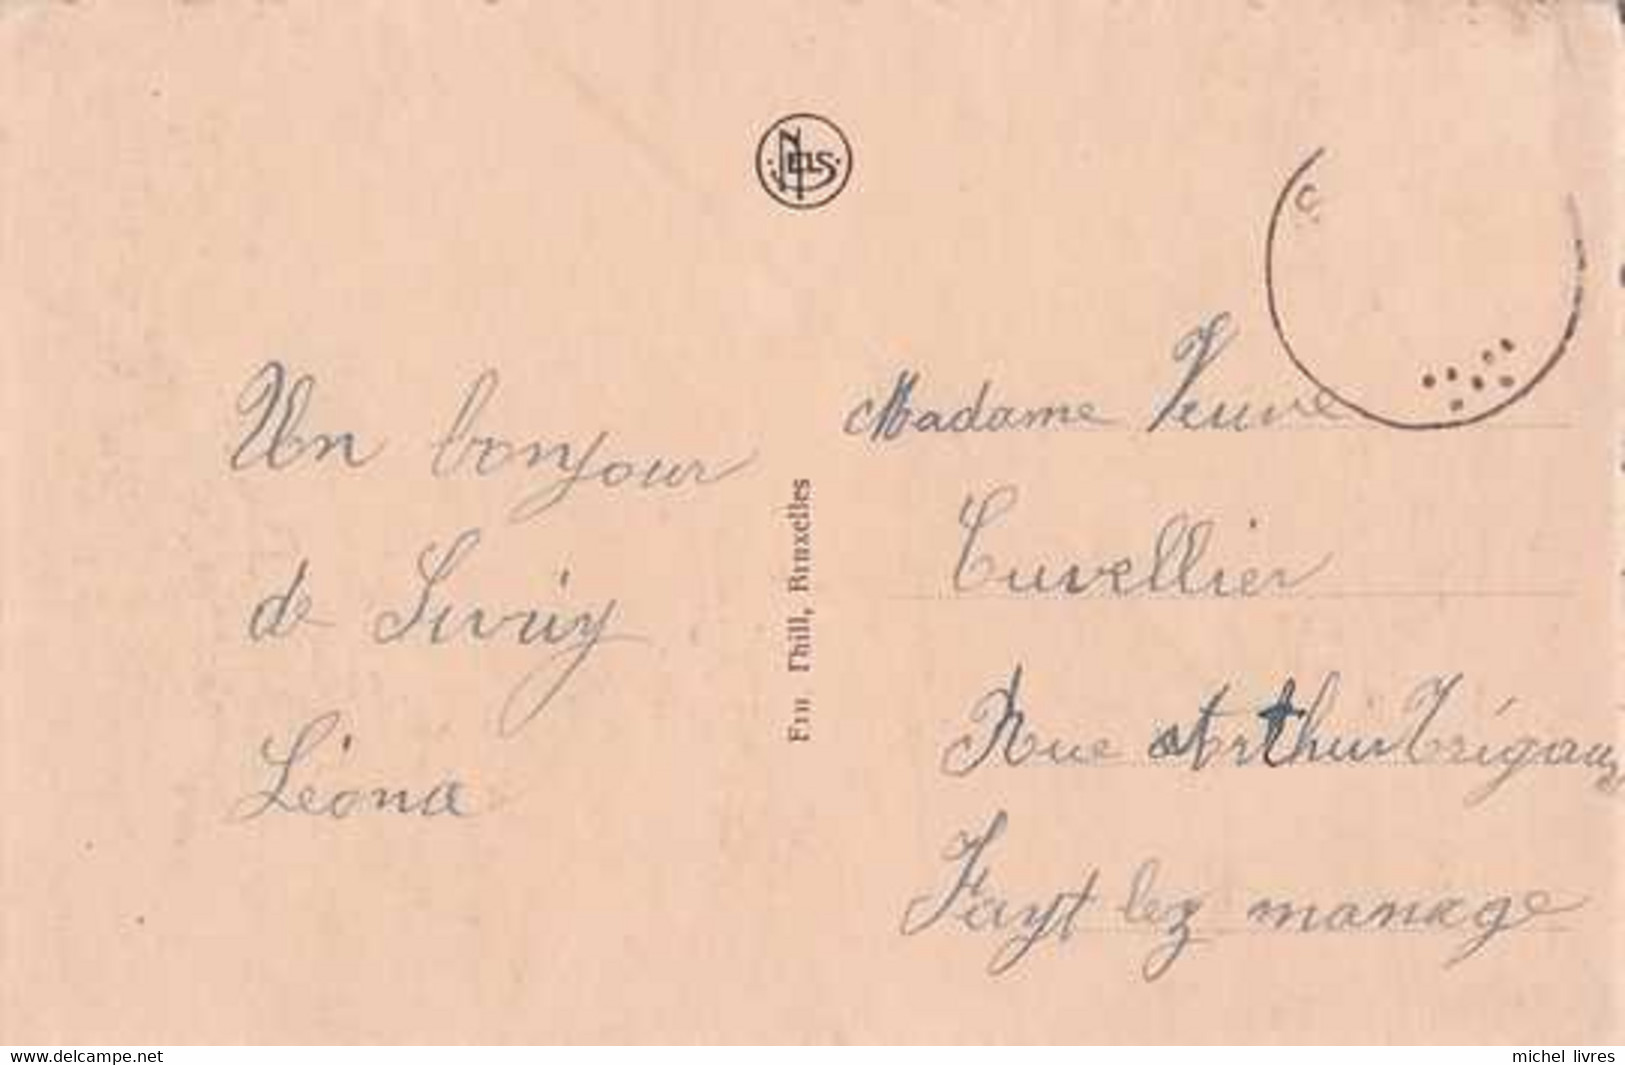 NELS
Un bonjour
de Sivry
Léona
Ern Thill, Bruxelles
Madame Veuve
Cuvellier
Rue Arthur Trigaux
Fayt lez manage
www.delcampe.net
michel_livres